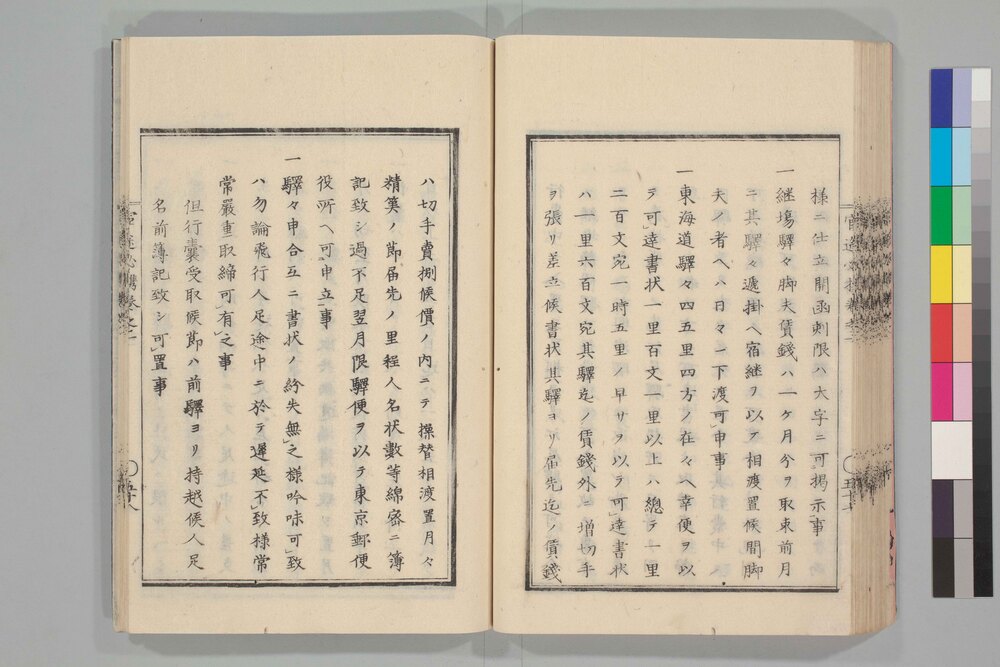 様ニ仕立開函刺限ハ大字ニ可掲示事
一継塲驛々脚夫賃錢ハ一ケ月分ヲ取束前月
ニ其驛々遞掛ヘ宿継ヲ以テ相渡置候間脚
夫ノ者ヘハ日々一下渡可申事
一東海道驛々四五里四方ノ在々ヘ幸便ヲ以
テ可達書状一里百文一里以上ハ總テ一里
二百文宛一時五里ノ早サヲ以ラ可達書状
ハ一里六百文宛其驛迄ノ賃錢外ニ増切手
ヲ張リ差立候書状其驛ヨリ届先迄ノ賃錢
ハ切手賣捌候價ノ内ニテ操替相渡置月々
精筭ノ節届先ノ里程人名状數等綿密ニ簿
記致シ過不足翌月限驛便ヲ以テ東京郵便
役所ヘ可申立事
一驛々申合互ニ書状ノ紛失無之様吟味可致
ハ勿論飛行人足途中ニ於テ遲延不致様常
常嚴重取締可有之事
但行嚢受取候節ハ前驛ヨリ持越候人足
名前簿記致シ可置事
五十七
五十八